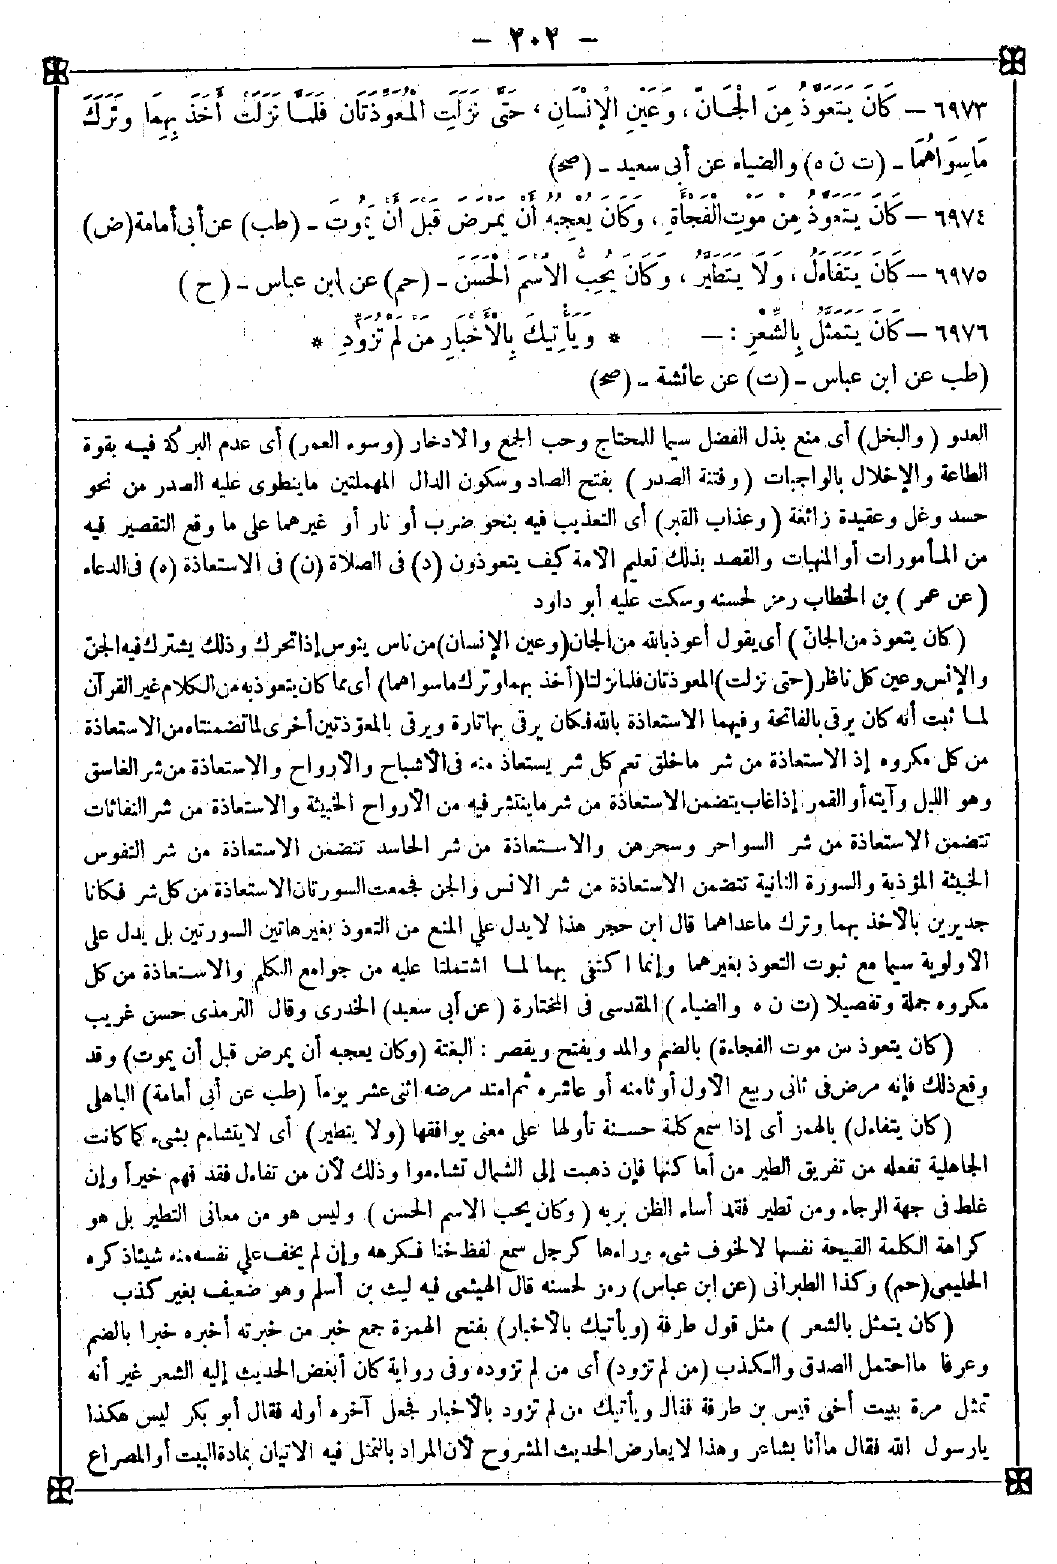 - ٢٠٢ -
٦٩٧٣ – كَانَ يَتَعَوَّذُ مِنَ الْجَانِّ، وَعَيْنِ الْإِنْسَانِ، حَتَّى نَزَلَتِ الْمُعَوِّذَتَانِ فَلَمَّا نَزَلَتْ أَخَذَ بِهِمَا وَتَرَكَ
مَاسِوَاهُمَا - (ت ن ه) والضياء عن أبى سعيد - (صح)
٦٩٧٤ – كَانَ يَتَعَوَّذُ مِنْ مَوْتِ الْفَجْأَةِ، وَكَانَ يُعْجِبُهُ أَنْ يَمْرَضَ قَبْلَ أَنْ يَمُوتَ - (طب) عن أبى أمامة (ض)
٦٩٧٥ – كَانَ يَتَفَاءَلُ، وَلَا يَتَطَيَّرُ، وَكَانَ يُحِبُّ الِاسْمَ الْحَسَنَ - (حم) عن ابن عباس - (ح)
٦٩٧٦ – كَانَ يَتَمَثَّلُ بِالشِّعْرِ : — * وَيَأْتِيكَ بِالْأَخْبَارِ مَنْ لَمْ تُزَوِّدِ *
(طب عن ابن عباس - (ت) عن عائشة - (صح)
العدو (والبخل) أى منع بذل الفضل سيما للمحتاج وحب الجمع والادخار (وسوء العمر) أى عدم البركة فيه بقوة
الطاعة والإخلال بالواجبات (وفتنة الصدر) بفتح الصاد وسكون الدال المهملتين ماينطوى عليه الصدر من نحو
حسد وغل وعقيدة زائغة (وعذاب القبر) أى التعذيب فيه بنحو ضرب أو نار أو غيرهما على ما وقع التقصير فيه
من المأمورات أو المنهيات والقصد بذلك تعليم الأمة كيف يتعوذون (د) فى الصلاة (ن) فى الاستعاذة (ه) فى الدعاء
(عن عمر) بن الخطاب رمز لحسنه وسكت عليه أبو داود
(كان يتعوذ من الجانّ) أى يقول أعوذ بالله من الجان (وعين الإنسان) من ناس ينوس إذا تحرك وذلك يشترك فيه الجنّ
والإنس وعين كل ناظر (حتى نزلت) المعوذتان فلما نزلتا (أخذ بهما وترك ما سواهما) أى مما كان يتعوذ به من الكلام غير القرآن
لما ثبت أنه كان يرقى بالفاتحة وفيهما الاستعاذة بالله فكان يرقى بها تارة ويرقى بالمعوّذتين أخرى لما تضمنتاه من الاستعاذة
من كل مكروه إذ الاستعاذة من شر ماخلق تعم كل شر يستعاذ منه فى الأشباح والأرواح والاستعاذة من شر الغاسق
وهو الليل وآيته أو القمر إذا غاب يتضمن الاستعاذة من شر ما ينتشر فيه من الأرواح الخبيثة والاستعاذة من شر النفاثات
تتضمن الاستعاذة من شر السواحر وسحرهن والاستعاذة من شر الحاسد تتضمن الاستعاذة من شر النفوس
الخبيثة المؤذية والسورة الثانية تتضمن الاستعاذة من شر الانس والجن فجمعت السورتان الاستعاذة من كل شر فكانا
جديرين بالأخذ بهما وترك ماعداهما قال ابن حجر هذا لايدل علي المنع من التعوذ بغير هاتين السورتين بل يدل على
الأولوية سيما مع ثبوت التعوذ بغيرهما وإنما اكتفى بهما لما اشتملتا عليه من جوامع الكلم والاستعاذة من كل
مكروه جملة وتفصيلا (ت ن ه والضياء) المقدسى فى المختارة (عن أبى سعيد) الخدرى وقال الترمذى حسن غريب
(كان يتعوذ من موت الفجاءة) بالضم والمد ويفتح ويقصر : البغتة (وكان يعجبه أن يمرض قبل أن يموت) وقد
وقع ذلك فإنه مرض فى ثانى ربيع الأول أو ثامنه أو عاشره ثم امتد مرضه اثنى عشر يوماً (طب عن أبى أمامة) الباهلى
(كان يتفاءل) بالهمز أى إذا سمع كلمة حسنة تأولها على معنى يوافقها (ولا يتطير) أى لايتشاءم بشىء كما كانت
الجاهلية تفعله من تفريق الطير من أماكنها فإن ذهبت إلى الشمال تشاءموا وذلك لأن من تفاءل فقد فهم خيراً وإن
غلط فى جهة الرجاء ومن تطير فقد أساء الظن بربه (وكان يحب الاسم الحسن) وليس هو من معانى التطير بل هو
كراهة الكلمة القبيحة نفسها لا لخوف شىء وراءها كرجل سمع لفظ خنا فكرهه وإن لم يخف علي نفسه منه شيئا ذكره
الحليمى (حم) وكذا الطبرانى (عن ابن عباس) رمز لحسنه قال الهيثمى فيه ليث بن أسلم وهو ضعيف بغير كذب
(كان يتمثل بالشعر) مثل قول طرفة (ويأتيك بالأخبار) بفتح الهمزة جمع خبر من خبرته أخبره خبرا بالضم
وعرفا ما احتمل الصدق والكذب (من لم تزود) أى من لم تزوده وفى رواية كان أبغض الحديث إليه الشعر غير أنه
تمثل مرة ببيت أخى قيس بن طرفة فقال ويأتيك من لم تزود بالأخبار فجعل آخره أوله فقال أبو بكر ليس هكذا
يارسول الله فقال ما أنا بشاعر وهذا لا يعارض الحديث المشروح لأن المراد بالتمثل فيه الاتيان بمادة البيت أو المصراع